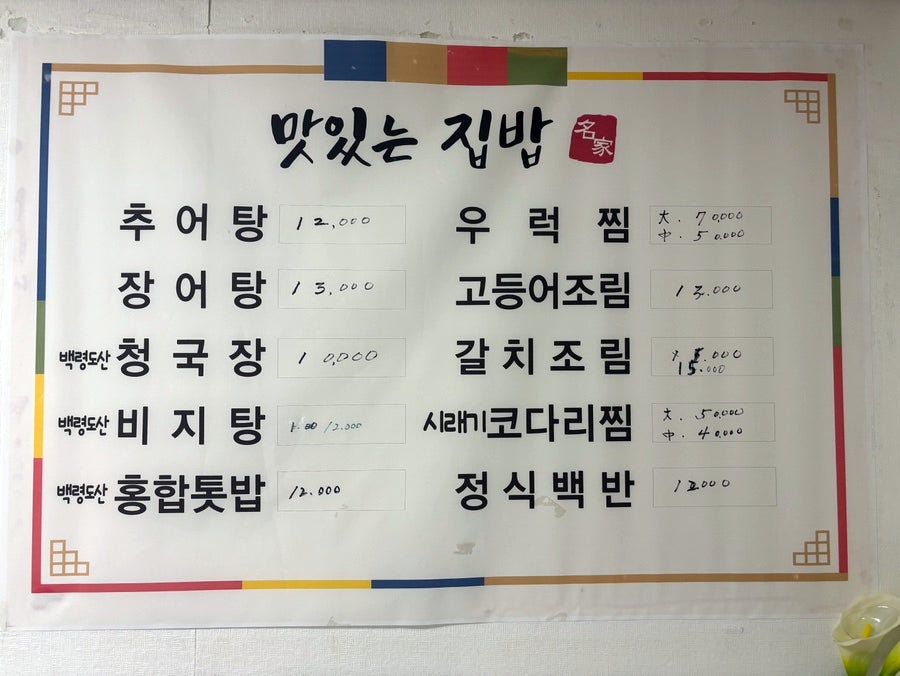 맛있는 집밥 名家
추어탕 12,000
장어탕 13,000
백령도산 청국장 10,000
백령도산 비지탕 12.000
백령도산 홍합톳밥 12.000
우럭찜 大. 70,000
中. 50,000
고등어조림 13.000
갈치조림
15.000
시래기코다리찜 大. 50,000
中. 40,000
정식백반